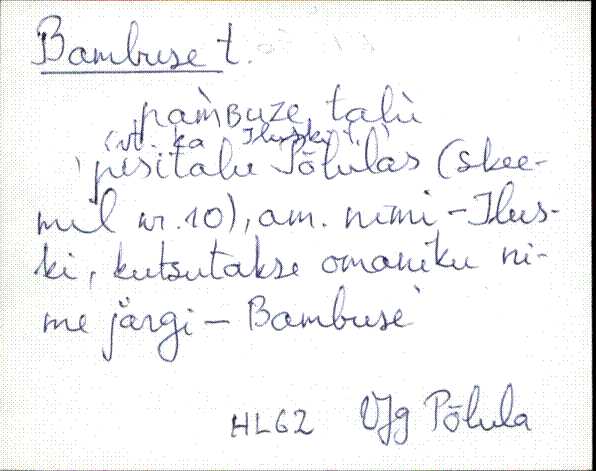 Bambuse t.
pàmʙuze talù
(vt. ka Iluski t.)
pisitalu Põlulas (skee-
mil nr. 10), am. nimi – Ilus-
ki, kutsutakse omaniku ni-
me järgi – Bambuse
HL62 VJg Põlula